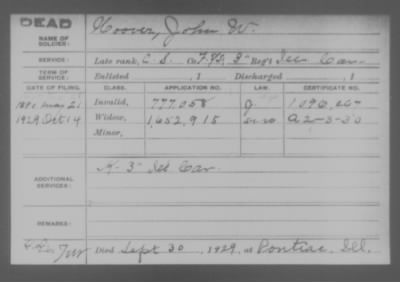 DEAD
NAME OF SOLDIER: Hoover, John W.
SERVICE: Late rank, C. S. Co. F. & S., 3" Reg't Ill. Cav.
TERM OF SERVICE: Enlisted , 1 Discharged , 1
DATE OF FILING. CLASS. APPLICATION NO. LAW. CERTIFICATE NO.
May 21 Invalid, 777,058
1929 Oct 14 Widow, 1,652,915 A2-3-30
Minor,
ADDITIONAL SERVICES: K- 3" Ill Cav.
REMARKS:
Died Sept 30, 1929, at Pontiac, Ill.